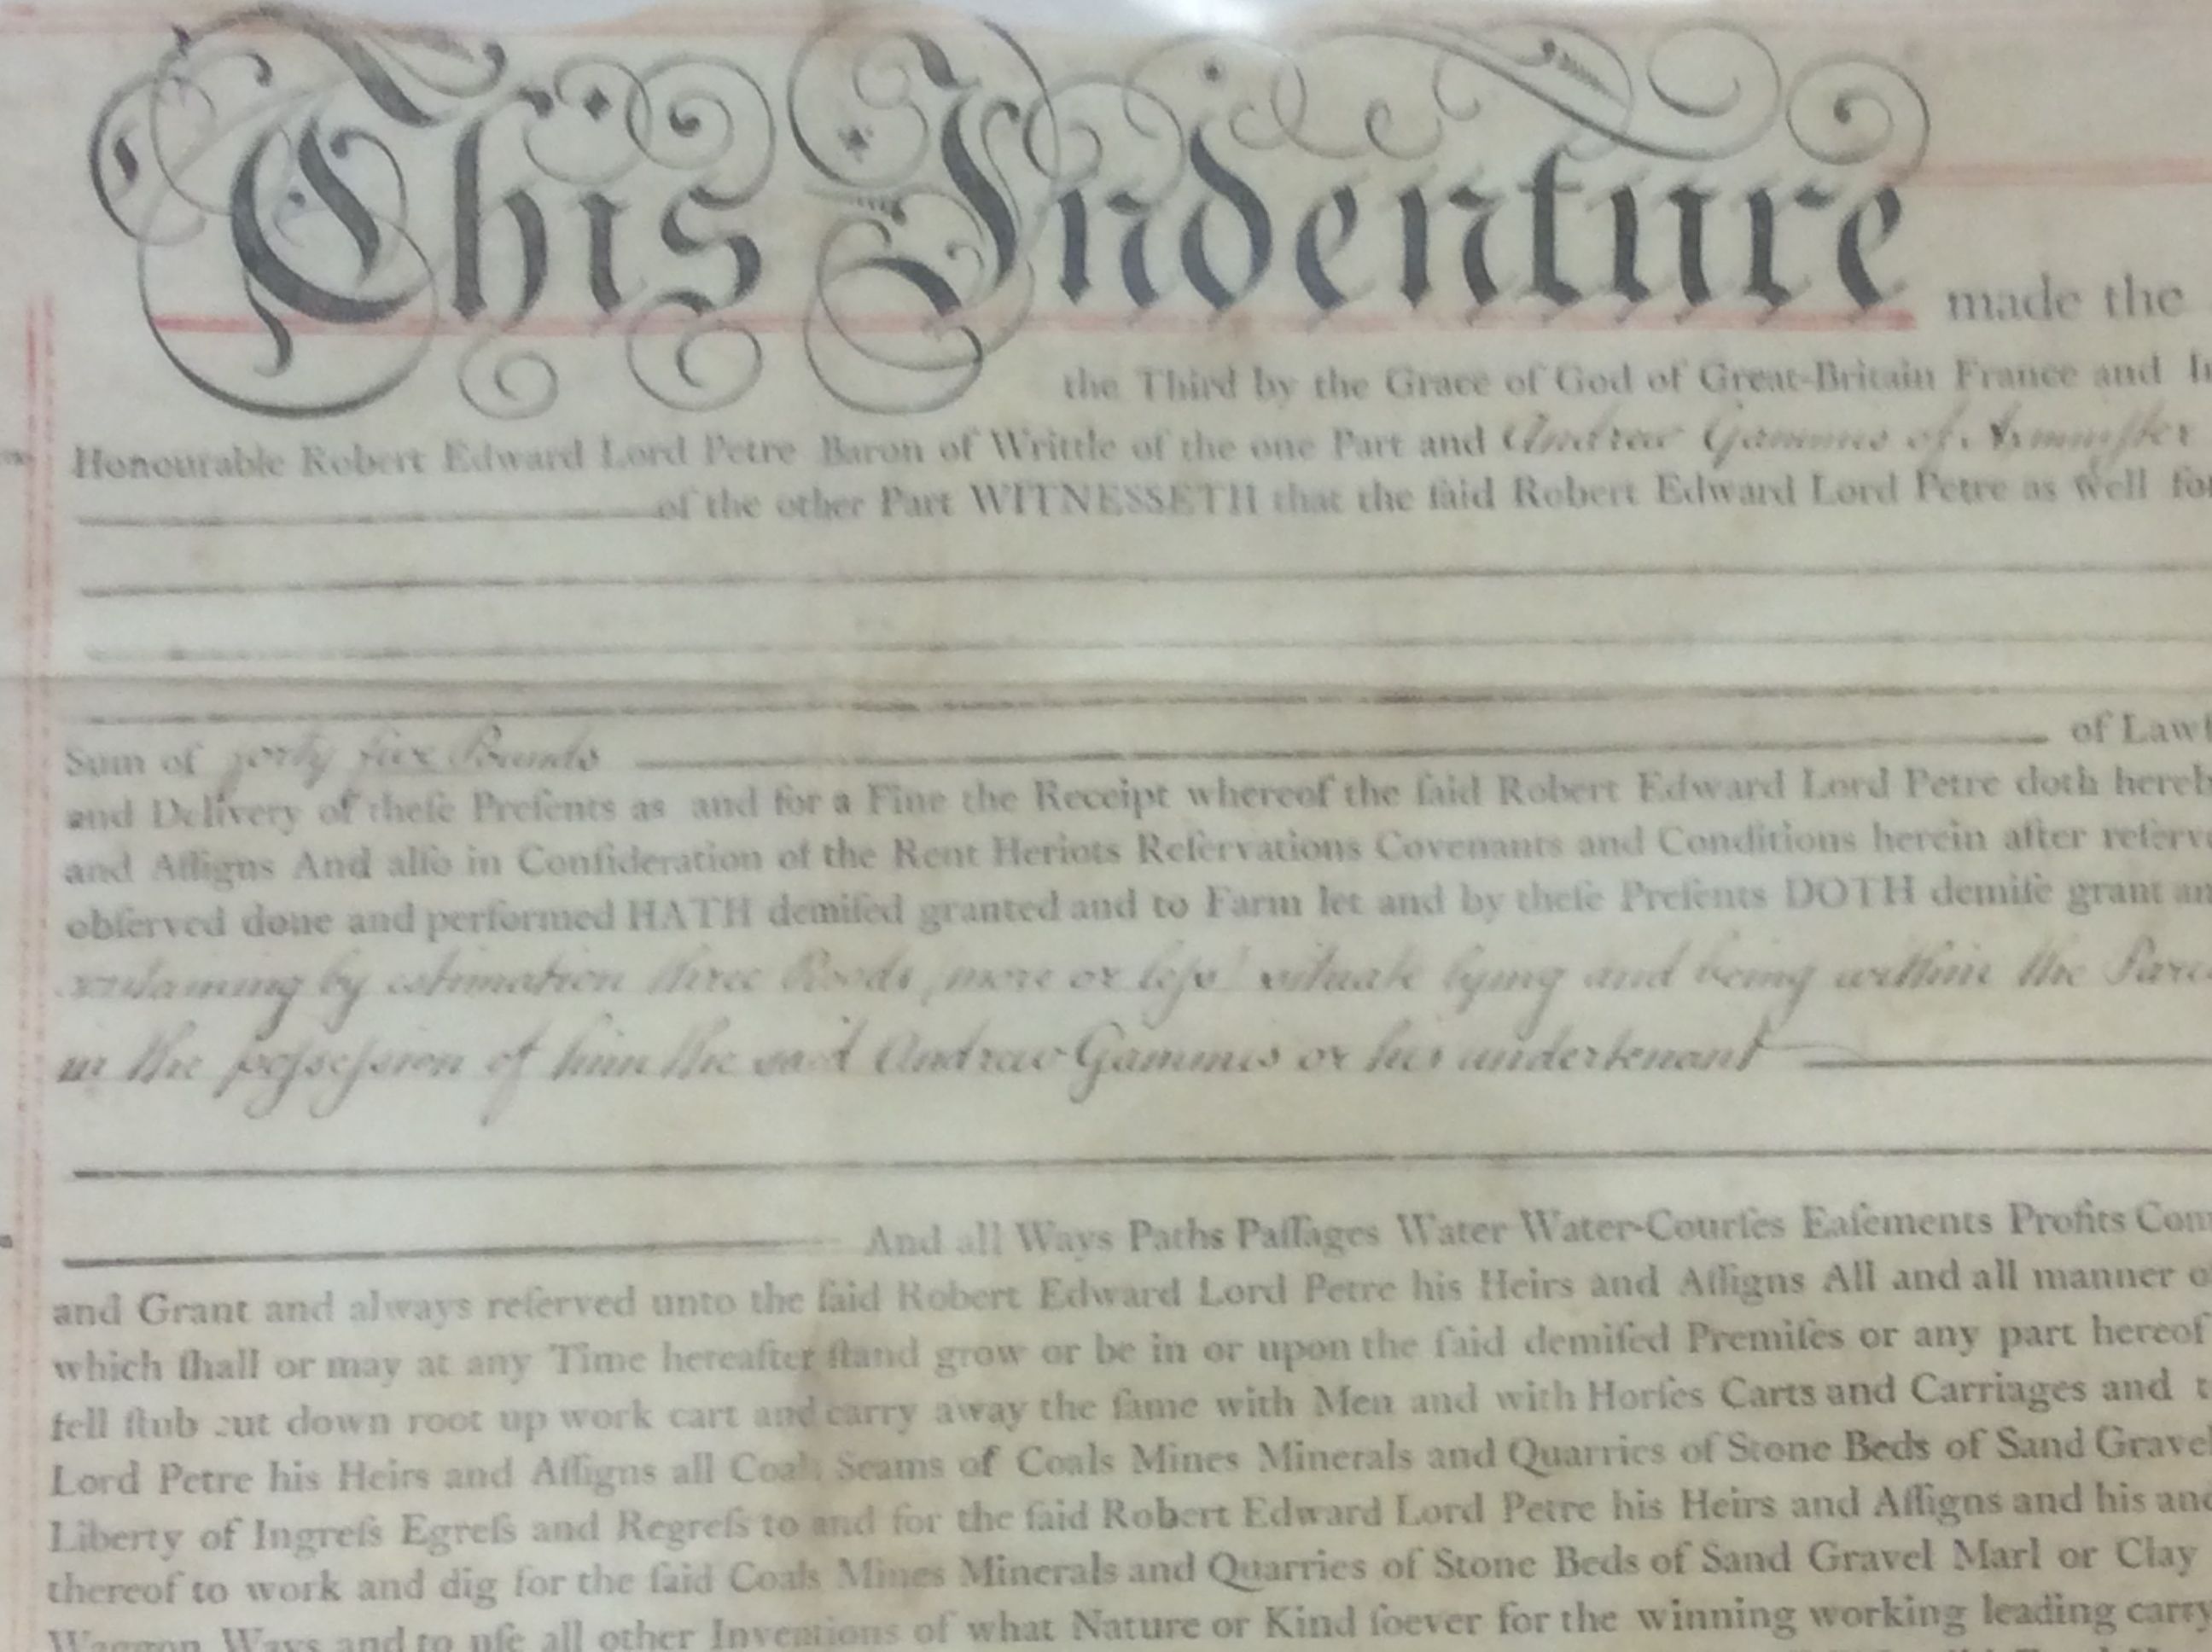 This Indenture made the
the Third by the Grace of God of Great-Britain France and
Honourable Robert Edward Lord Petre Baron of Writtle of the one Part and Andrew Gammis of Axminster
of the other Part WITNESSETH that the ſaid Robert Edward Lord Petre as well for
Sum of forty five Pounds of Lawf
and Delivery of theſe Preſents as and for a Fine the Receipt whereof the ſaid Robert Edward Lord Petre doth hereb
and Aſſigns And alſo in Conſideration of the Rent Heriots Reſervations Covenants and Conditions herein after reſerv
obſerved done and performed HATH demiſed granted and to Farm let and by theſe Preſents DOTH demiſe grant an
containing by estimation three Roods (more or leſs) situate lying and being within the
in the poſseſsion of him the said Andrew Gammis or his undertenant
And all Ways Paths Paſſages Water Water-Courſes Eaſements Profits Com
and Grant and always reſerved unto the ſaid Robert Edward Lord Petre his Heirs and Aſſigns All and all manner of
which ſhall or may at any Time hereafter ſtand grow or be in or upon the ſaid demiſed Premiſes or any part hereof
fell ſtub cut down root up work cart and carry away the ſame with Men and with Horſes Carts and Carriages and t
Lord Petre his Heirs and Aſſigns all Coals Seams of Coals Mines Minerals and Quarries of Stone Beds of Sand Gravel
Liberty of Ingreſs Egreſs and Regreſs to and for the ſaid Robert Edward Lord Petre his Heirs and Aſſigns and his and
thereof to work and dig for the ſaid Coals Mines Minerals and Quarries of Stone Beds of Sand Gravel Marl or Clay
Waggon Ways and to uſe all other Inventions of what Nature or Kind ſoever for the winning working leading carry